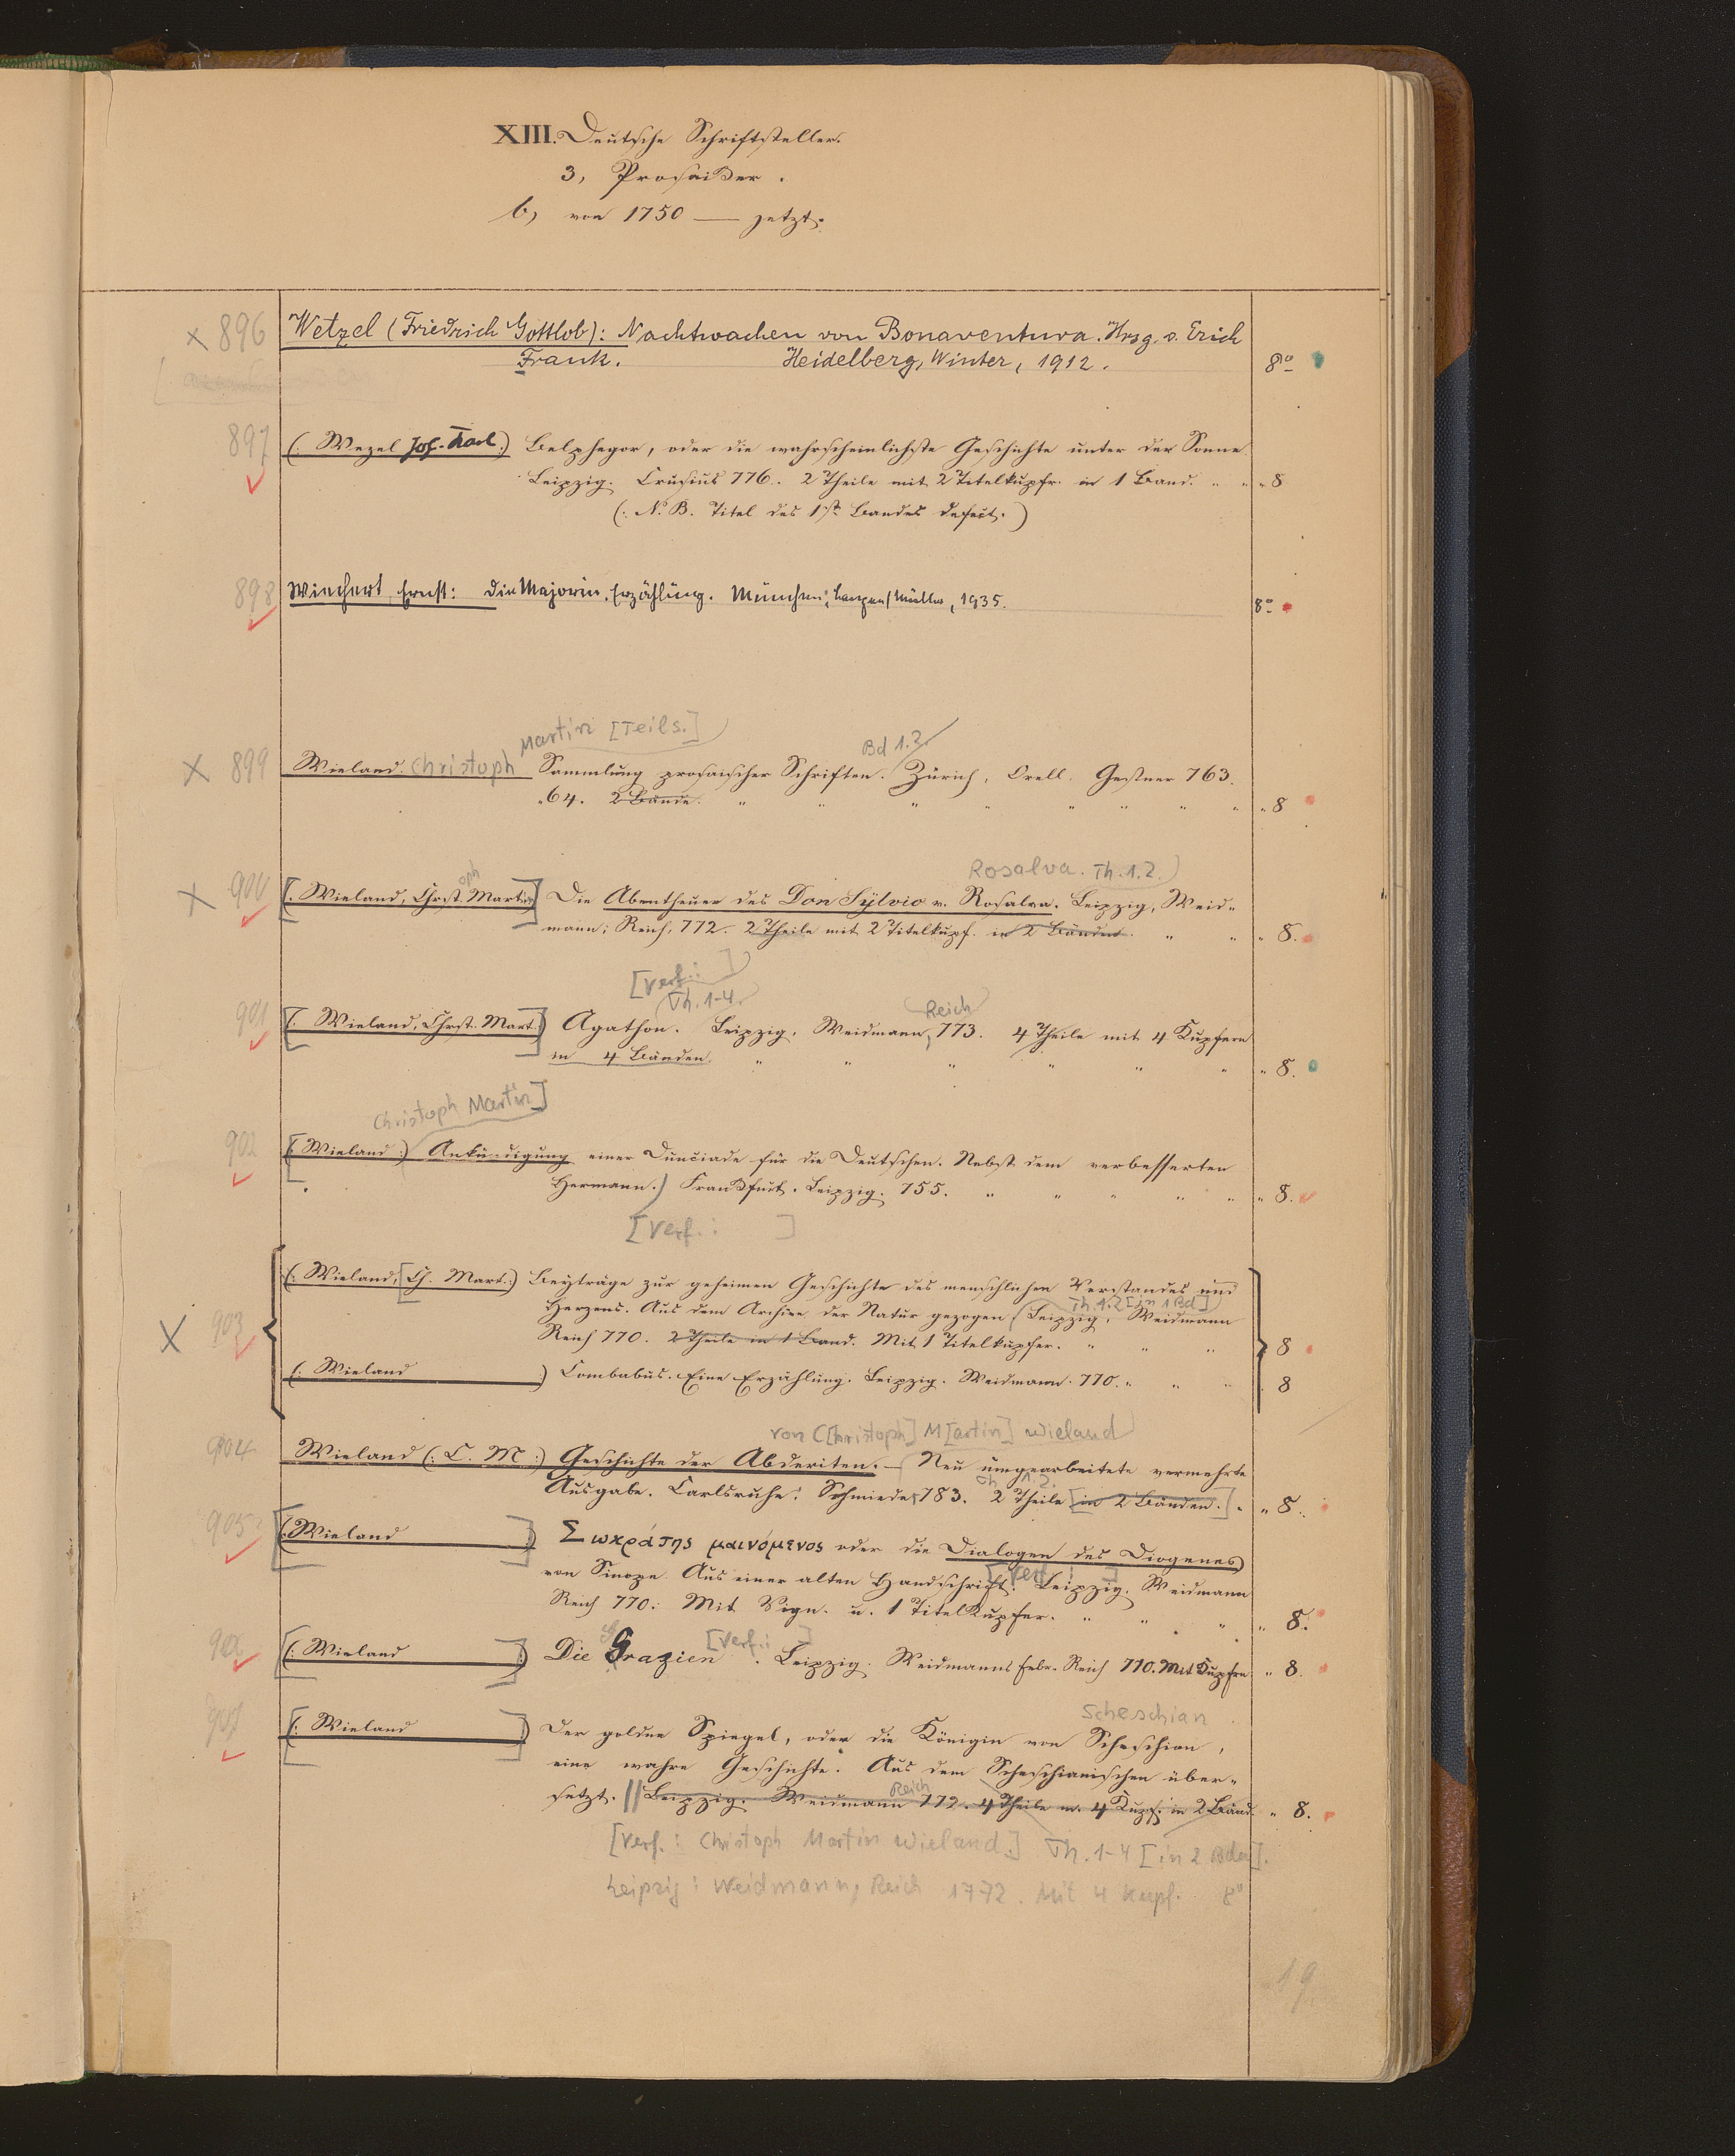 XIII. Deutsche Schriftsteller.
3, Prosaiker.
b, von 1750 — jetzt.
x 896 Wetzel (Friedrich Gottlob): Nachtwachen von Bonaventura. Hrsg. v. Erich
Frank. Heidelberg, Winter, 1912. 8°
897 (: Wezel Joh. Karl :) Belphegor, oder die wahrscheinlichste Geschichte unter der Sonne.
Leipzig. Crusius 776. 2 Theile mit 2 Titelkupfr. in 1 Band. " " " 8
(: N. B. Titel des 1st. Bandes defect. )
898 Wiechert, Ernst: Die Majorin, Erzählung. München: Langen/Müller, 1935. 8°
Martin [Teils.] Bd 1.2.
x 899 Wieland. Christoph Sammlung prosaischer Schriften. Zürich, Orell. Gessner 763.
"64. 2 Bände. " " " " " " " " " 8
Rosalva. Th. 1.2.
x 900 [: Wieland, Christ. oph Martin] Die Abentheuer des Don Sylvio v. Rosalva. Leipzig, Weid-
mann; Reich, 772. 2 Theile mit 2 Titelkupf. in 2 Bänden. " " " 8.
[Verf.: ]
Th. 1-4. Reich
901 [: Wieland, Chrst. Mart. :] Agathon. Leipzig, Weidmann, 773. 4 Theile mit 4 Kupfern
in 4 Bänden. " " " " " " " 8.
Christoph Martin]
902 [: Wieland :) Ankündigung einer Dunciade für die Deutschen. Nebst dem verbesserten
Hermann.) Frankfurt. Leipzig. 755. " " " " " " 8.
[Verf.: ]
(: Wieland, [Ch. Mart. :) Beyträge zur geheimen Geschichte des menschlichen Verstandes und
Th. 1.2 [in 1 Bd]
Herzens. Aus dem Archive der Natur gezogen. Leipzig, Weidmann
x 903 Reich 770. 2 Theile in 1 Band. Mit 1 Titelkupfer. " " " 8
(: Wieland :) Combabus. Eine Erzählung. Leipzig. Weidmann. 770. " " " 8
von C[hristoph] M[artin] Wieland
904 Wieland (: C. M :) Geschichte der Abderiten. — Neu umgearbeitete vermehrte
Th. 1.2.
Ausgabe. Carlsruhe: Schmieder 783. 2 Theile [in 2 Bänden.] " " 8.
905 [: Wieland :] Σωκράτης μαινόμενος oder die Dialogen des Diogenes
[Verf.: ]
von Sinope. Aus einer alten Handschrift. Leipzig. Weidmann
Reich 770. Mit Vign. u. 1 Titelkupfer. " " " " 8.
906 [: Wieland :] Die Grazien [Verf.: ]. Leipzig. Weidmanns Erbe. Reich 770. Mit Kupfrn. " 8.
Scheschian
907 [: Wieland :] Der goldne Spiegel, oder die Königin von Scheschian,
eine wahre Geschichte. Aus dem Scheschianischen über-
Reich
setzt. // Leipzig. Weidmann 772. 4 Theile m. 4 Kupf. in 2 Bänd. " 8.
[Verf.: Christoph Martin Wieland.] Th. 1-4 [in 2 Bden].
Leipzig: Weidmann, Reich 1772. Mit 4 Kupf. 8°
19